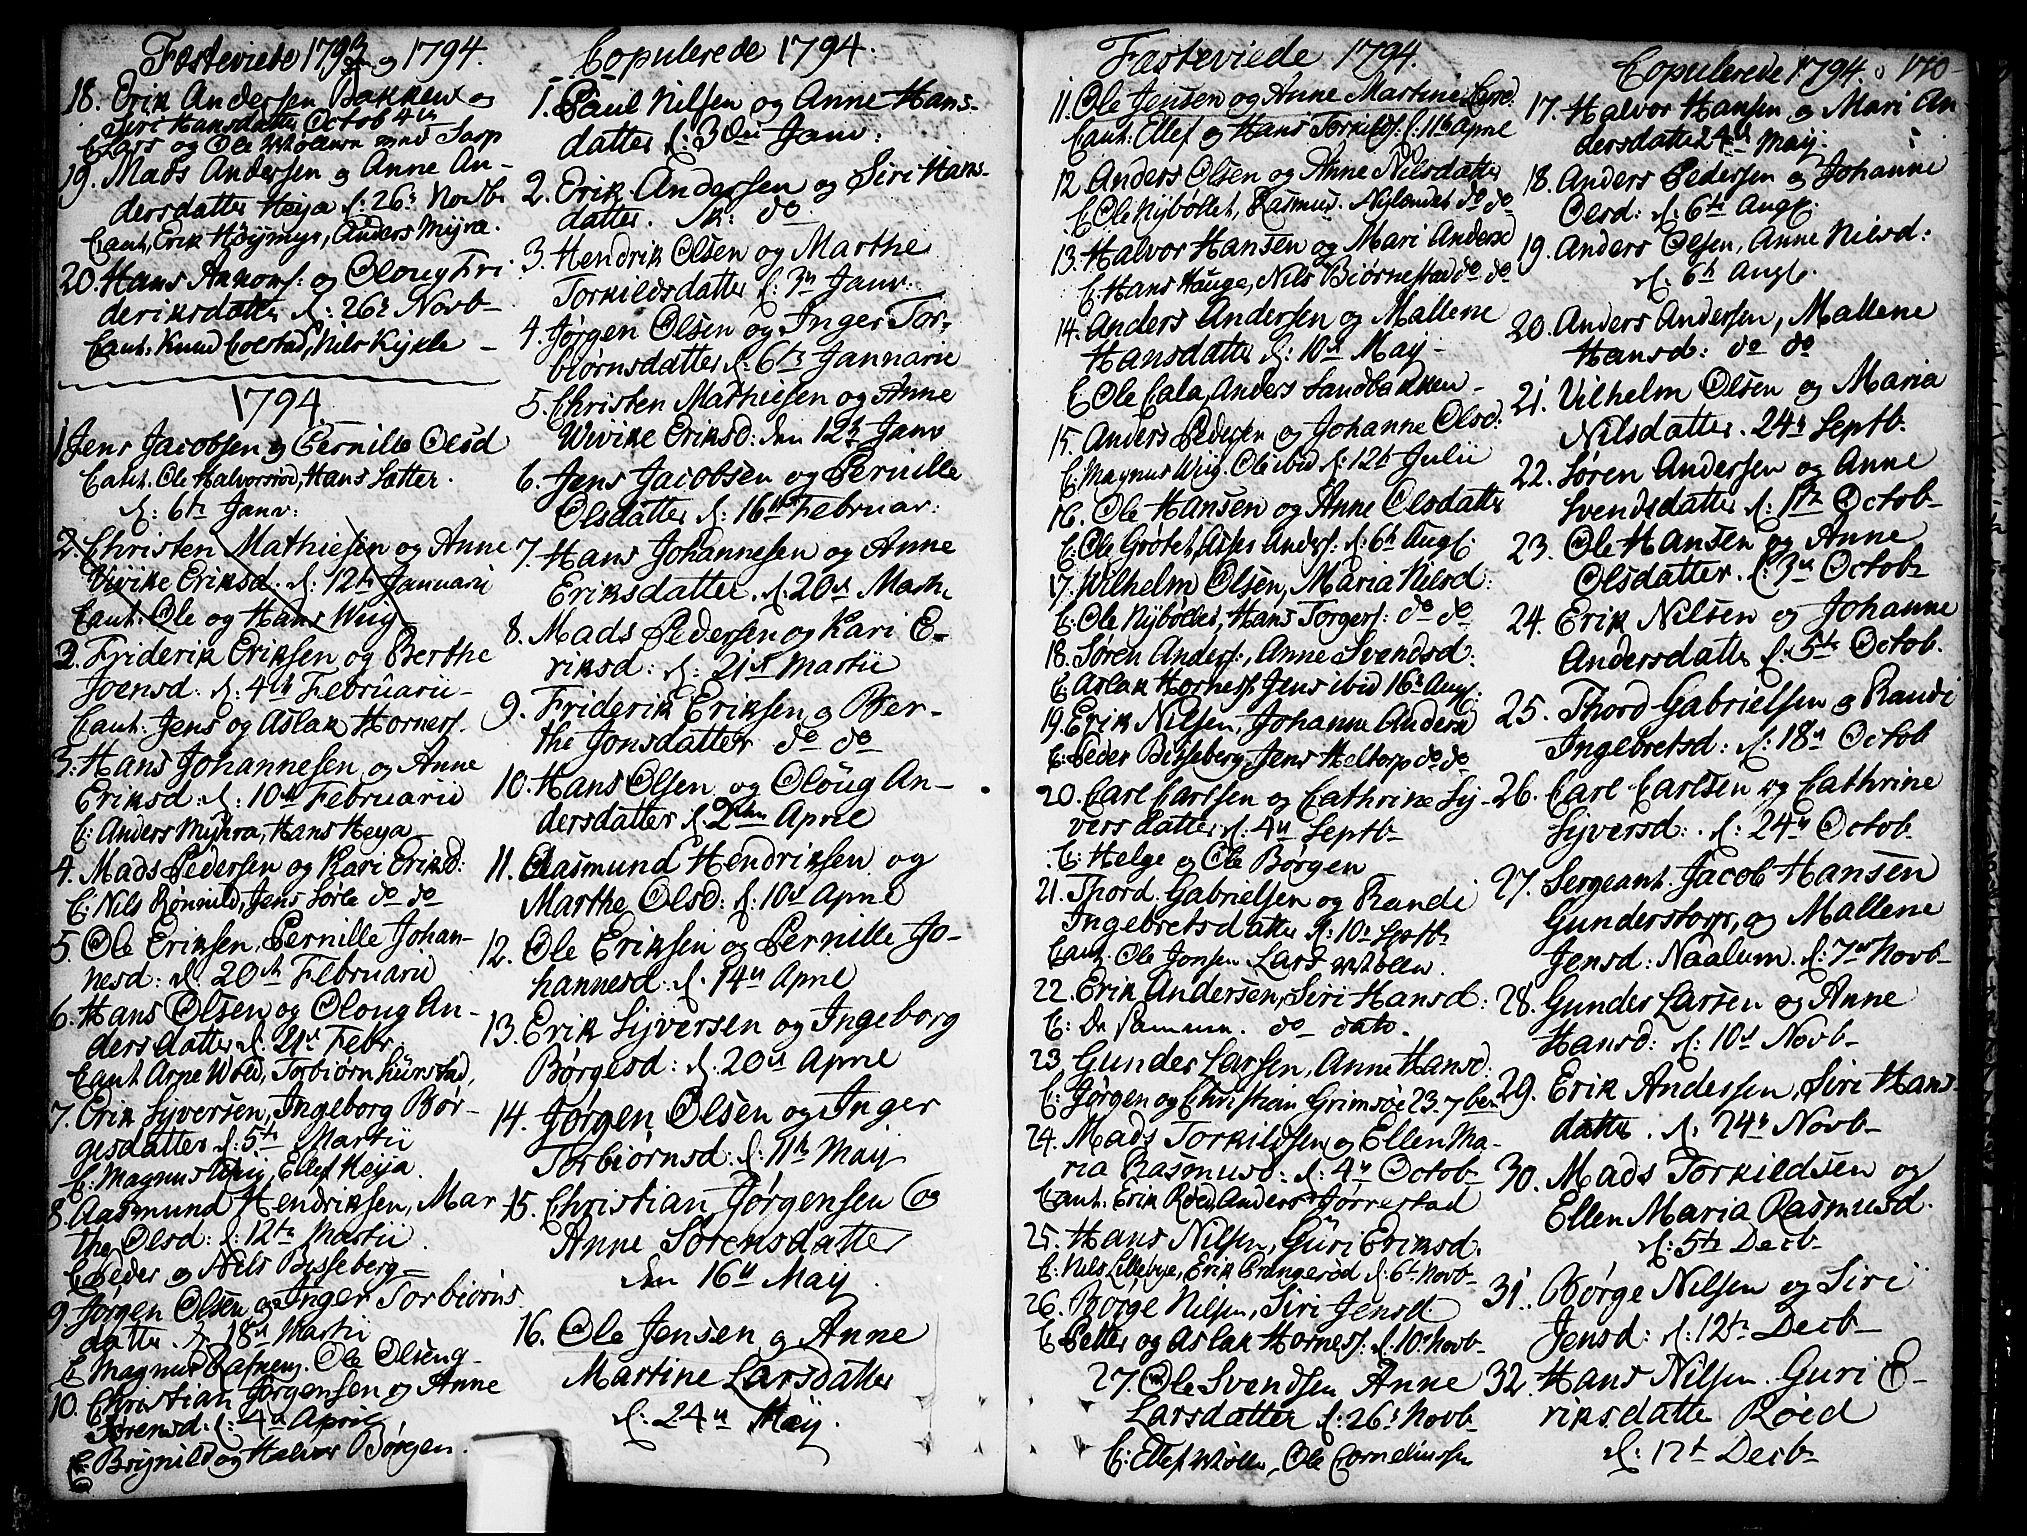 Fæsteviede 1793 og 1794.
18. Erik Andersen Bakken og
Siri Hansdatter Octob 4de
Lars og Ole Wolden med Sarp
19. Mads Andersen og Anne An-
dersdatter Heÿa d: 26de Novb
Caut. Erik Höÿmyr, Anders Mÿra.
20. Hans Aronsf: og Oloug Fri
deriksdatter d: 26de Novb
Caut: Knud Colstad, Nils Kykle
1794
1 Jens Jacobsen og Pernille Olsd
Caut. Ole Halvorsrød, Hans Sætter.
d: 6te Janv:
2. Christen Mathiesen og Anne
Wivike Eriksd. d: 12te Januarii
Caut. Ole og Hans Wiig
2. Friderik Eriksen og Berthe
Joensd: d: 4de Februarii
Caut. Jens og Aslak Hornesf.
3. Hans Johannesen og Anne
Eriksd: d: 10de Februarii
C: Anders Mÿhra, Hans Heÿa
4. Mads Pedersen og Kari Eriksd:
C: Nils Rønnild, Jens Sørle do do
5. Ole Eriksen, Pernille Johan-
nesd: d: 20de Februarii
6. Hans Olsen og Oloug An-
dersdatter d: 21de Febr.
Caut Arne Wold, Torbiørn
7. Erik Sÿversen, Ingeborg Bør-
gesdatter d: 5te Martii
C: Magnus Wiig, Ellef Heÿa.
8. Aasmund Hendriksen, Mar
the Olsd: d: 12te Martii
C Peder og Nils Bisseberg
9. Jørgen Olsen og Inger Torbiørns
datter d 18de Martii
C Magnus Rafneng. Ole Olseng
10. Christian Jørgensen og Anne
Sørensd: d: 4de Aprilis
C. Brÿnild og Halvor Børgen.
Copulerede 1794.
1. Paul Nilsen og Anne Hans-
datter d: 3die Janv:
2. Erik Andersen og Siri Hans-
datter. do
3. Hendrik Olsen og Marthe
Torkildsdatter d: 3de Janv:
4. Jørgen Olsen og Inger Tor-
biørnsdatter d: 6te Januarii
5. Christen Mathiesen og Anne
Wivike Eriksd: den 12te Janv
6. Jens Jacobsen og Pernille
Olsdatter d: 16de Februar:
7. Hans Johannesen og Anne
Eriksdatter. d: 20de Martii
8. Mads Pedersen og Kari E-
riksd: d: 21de Martii
9. Friderik Eriksen og Ber-
the Jonsdatter do do
10. Hans Olsen og Oloug An-
dersdatter d. 2den Aprile
11. Aasmund Hendriksen og
Marthe Olsd: d: 10de Aprile
12. Ole Eriksen og Pernille Jo-
hannesd: d. 14de Aprile
13. Erik Sÿversen og Ingeborg
Børgesd: d. 20de Aprile
14. Jørgen Olsen og Inger
Torbiørnsd: d: 11te Maÿ
15. Christian Jørgensen og
Anne Sørensdatter
den 16de Maÿ.
16. Ole Jensen og Anne
Martine Larsdatter
d. 24de Maÿ.
Fæsteviede 1794.
11. Ole Jensen og Anne Martine Larsd:
Caut: Ellef og Hans Torkildsf: d: 11te Aprile
12 Anders Olsen og Anne Nilsdatter
C Ole Nÿbøllet, Rasmus Nÿlendet do do
13. Halvor Hansen og Mari Andersd
C. Hans Hauge, Nils Biørnestad do do
14. Anders Andersen og Mallene
Hansdatter d: 10de Maÿ
C Ole Cala, Anders Sandbakken
15. Anders Pedersen og Johanne Olsd:
C: Magnus Wiig. Ole ibid d: 12te Julii
16. Ole Hansen og Anne Olsdatter
C: Ole Grotet, Asper Andersf: d: 6te Augf.
17. Wilhelm Olsen, Maria Nilsd:
C: Ole Nÿbøllet, Hans Torgersf: do do
18. Søren Andersf:, Anne Svendsd:
C: Aslak Hornesf, Jens ibid 16de Augf.
19. Erik Nilsen, Johanne Andersd
C: Peder Bisseberg, Jens Heltorp do do
20. Carl Carlsen og Cathrine Sÿ-
versdatter d. 4de Septb
C: Helge og Ole Borgen
21. Thord Gabrielsen og Randi
Ingebretsdatter d: 10de Septb
Caut. Ole Jonsen Lars Wolden.
22. Erik Andersen, Siri Hansd:
C: De samme. do dato.
23 Gunder Larsen, Anne Hansd:
C: Jørgen og Christian Grimsøe 23. 7ber
24. Mads Torkildsen og Ellen Ma-
ria Rasmusd: d: 4de Octob
Caut. Erik Røed, Anders Jørrestad
25. Hans Nilsen, Guri Eriksd.
C: Nils Lillebye, Erik Prangerød d: 6te Novb
26. Børge Nilsen, Siri Jensd:
C: Petter og Aslak Hornesf: d. 10de Novb
27. Ole Svendsen Anne
Larsdatter d: 26de Novb
C: Ellef Wolden, Ole Corneliussen
Copulerede 1794. 170
17. Halvor Hansen og Mari An
dersdatter 24de Maÿ.
18. Anders Pedersen og Johanne
Olsd: d. 6te Augf.
19. Anders Olsen, Anne Nilsd:
d. 6te Augf.
20. Anders Andersen, Mallene
Hansd: do do
21. Vilhelm Olsen og Maria
Nilsdatter. 24de Septb.
22. Søren Andersen og Anne
Svendsdatter d. 1te Octob
23. Ole Hansen og Anne
Olsdatter. d. 3de Octob
24. Erik Nilsen og Johanne
Andersdatter d. 5te Octob.
25. Thord Gabrielsen og Randi
Ingebretsd: d. 18de Octob
26. Carl Carlsen og Cathrine
Sÿversd: d. 24de Octob
27. Sergeant Jacob Hansen
Gunderstorp, og Mallene
Jensd: Naalum. d. 7de Novb
28. Gunder Larsen og Anne
Hansd: d: 10de Novb
29. Erik Andersen, Siri Hans-
datter. d. 24de Novb
30. Mads Torkildsen og
Ellen Maria Rasmusd.
d: 5te Decb
31. Børge Nilsen og Siri
Jensd: d: 12te Decb
32. Hans Nilsen. Guri E-
riksdatter Røed
d. 12te Decb